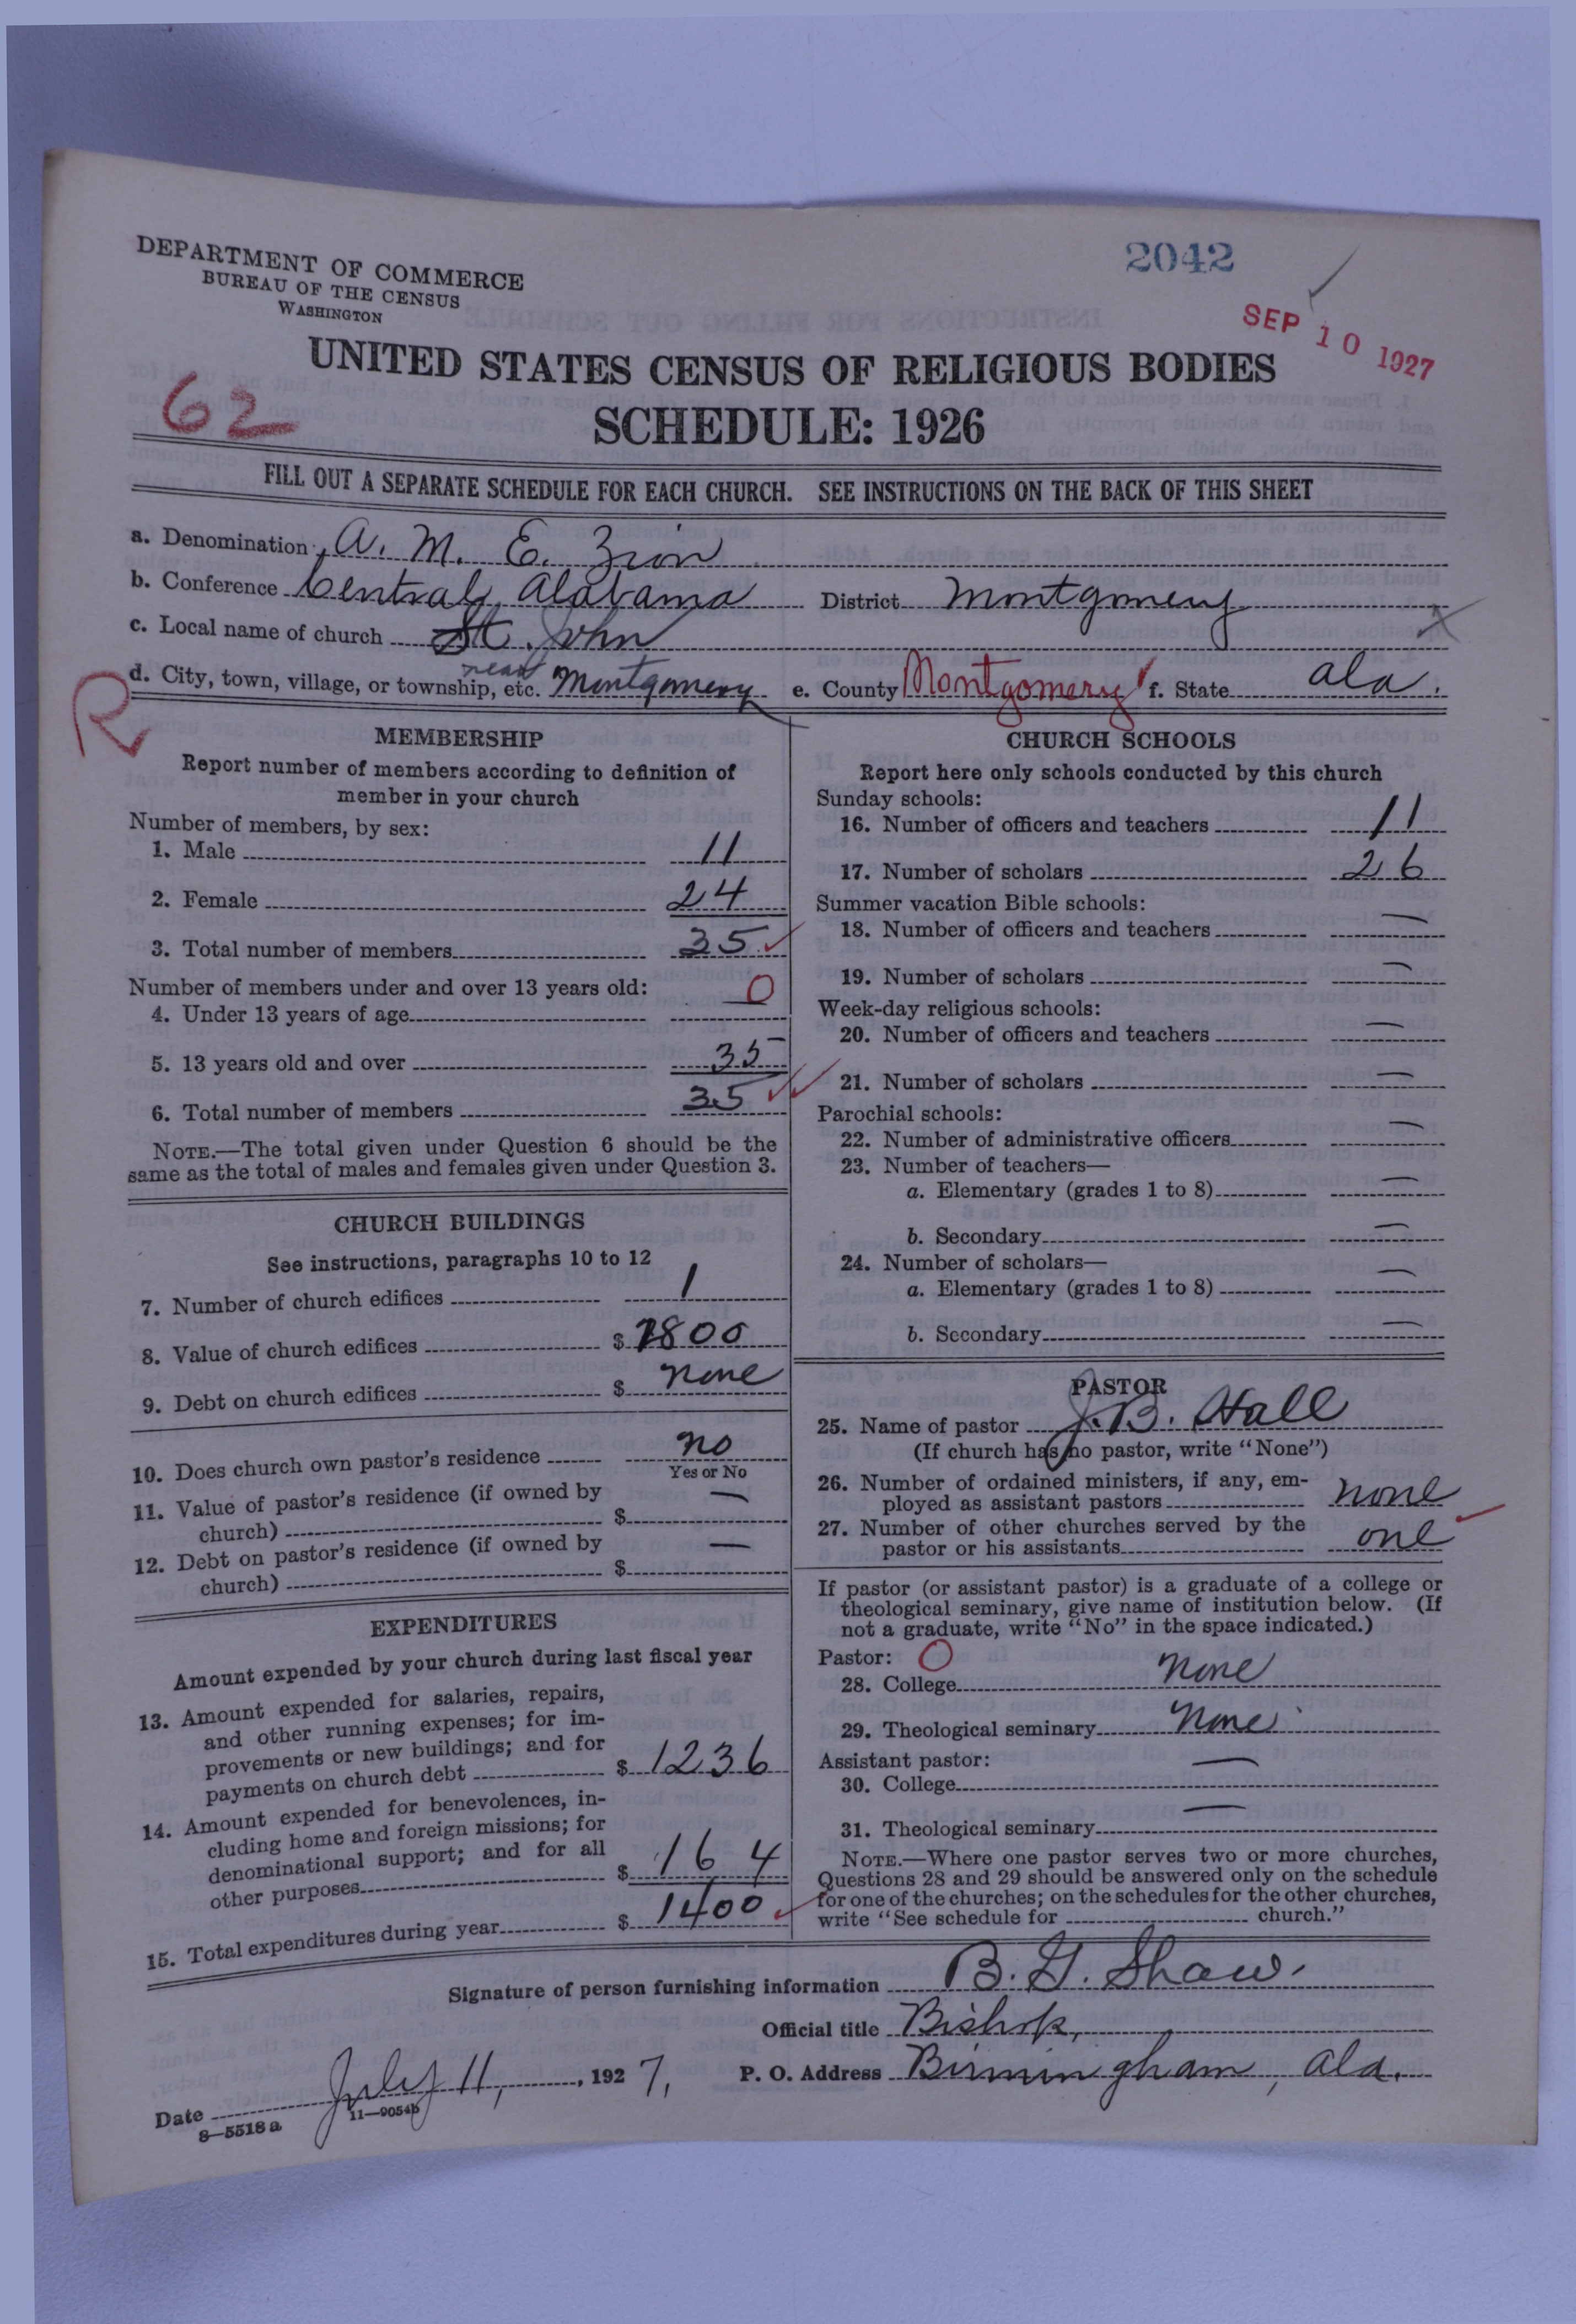 DEPARTMENT OF COMMERCE
BUREAU OF THE CENSUS
WASHINGTON
2042
SEP 10 1927
UNITED STATES CENSUS OF RELIGIOUS BODIES
62
SCHEDULE: 1926
FILL OUT A SEPARATE SCHEDULE FOR EACH CHURCH. SEE INSTRUCTIONS ON THE BACK OF THIS SHEET
a. Denomination A. M. E. Zion
b. Conference Central Alabama District Montgomery
c. Local name of church St. John
d. City, town, village, or township, etc. near Montgomery e. County Montgomery f. State Ala.
R
MEMBERSHIP
Report number of members according to definition of
member in your church
Number of members, by sex:
1. Male 11
2. Female 24
3. Total number of members 35
Number of members under and over 13 years old:
4. Under 13 years of age 0
5. 13 years old and over 35
6. Total number of members 35
NOTE.—The total given under Question 6 should be the
same as the total of males and females given under Question 3.
CHURCH BUILDINGS
See instructions, paragraphs 10 to 12
7. Number of church edifices 1
8. Value of church edifices $ 1800
9. Debt on church edifices $ none
10. Does church own pastor's residence no
Yes or No
11. Value of pastor's residence (if owned by
church) $ —
12. Debt on pastor's residence (if owned by
church) $ —
EXPENDITURES
Amount expended by your church during last fiscal year
13. Amount expended for salaries, repairs,
and other running expenses; for im-
provements or new buildings; and for
payments on church debt $ 1236
14. Amount expended for benevolences, in-
cluding home and foreign missions; for
denominational support; and for all
other purposes $ 164
15. Total expenditures during year $ 1400
CHURCH SCHOOLS
Report here only schools conducted by this church
Sunday schools:
16. Number of officers and teachers 11
17. Number of scholars 26
Summer vacation Bible schools:
18. Number of officers and teachers —
19. Number of scholars —
Week-day religious schools:
20. Number of officers and teachers —
21. Number of scholars —
Parochial schools:
22. Number of administrative officers —
23. Number of teachers—
a. Elementary (grades 1 to 8) —
b. Secondary —
24. Number of scholars—
a. Elementary (grades 1 to 8) —
b. Secondary —
PASTOR
25. Name of pastor J. B. Hall
(If church has no pastor, write "None")
26. Number of ordained ministers, if any, em-
ployed as assistant pastors none
27. Number of other churches served by the
pastor or his assistants one
If pastor (or assistant pastor) is a graduate of a college or
theological seminary, give name of institution below. (If
not a graduate, write "No" in the space indicated.)
Pastor: 0
28. College none
29. Theological seminary none
Assistant pastor:
30. College —
31. Theological seminary —
NOTE.—Where one pastor serves two or more churches,
Questions 28 and 29 should be answered only on the schedule
for one of the churches; on the schedules for the other churches,
write "See schedule for church."
Signature of person furnishing information B. G. Shaw.
Official title Bishop,
Date July 11, 1927, P. O. Address Birmingham, Ala.
8—5518a 11—9054b